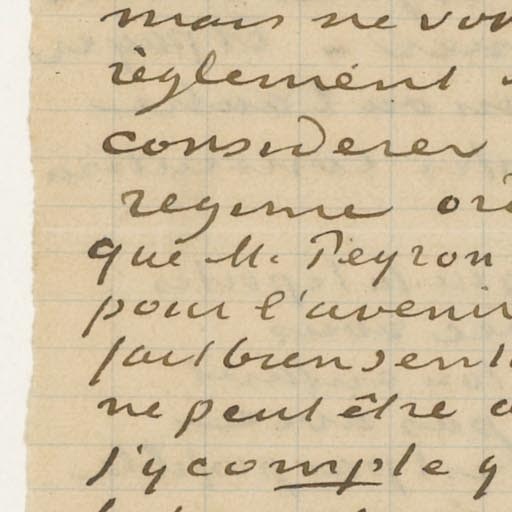 mais ne von
règlement
considerer
regime ori
que M. Peyron
pour l'avenir
fait bien sent
ne peut être
j'y compte q